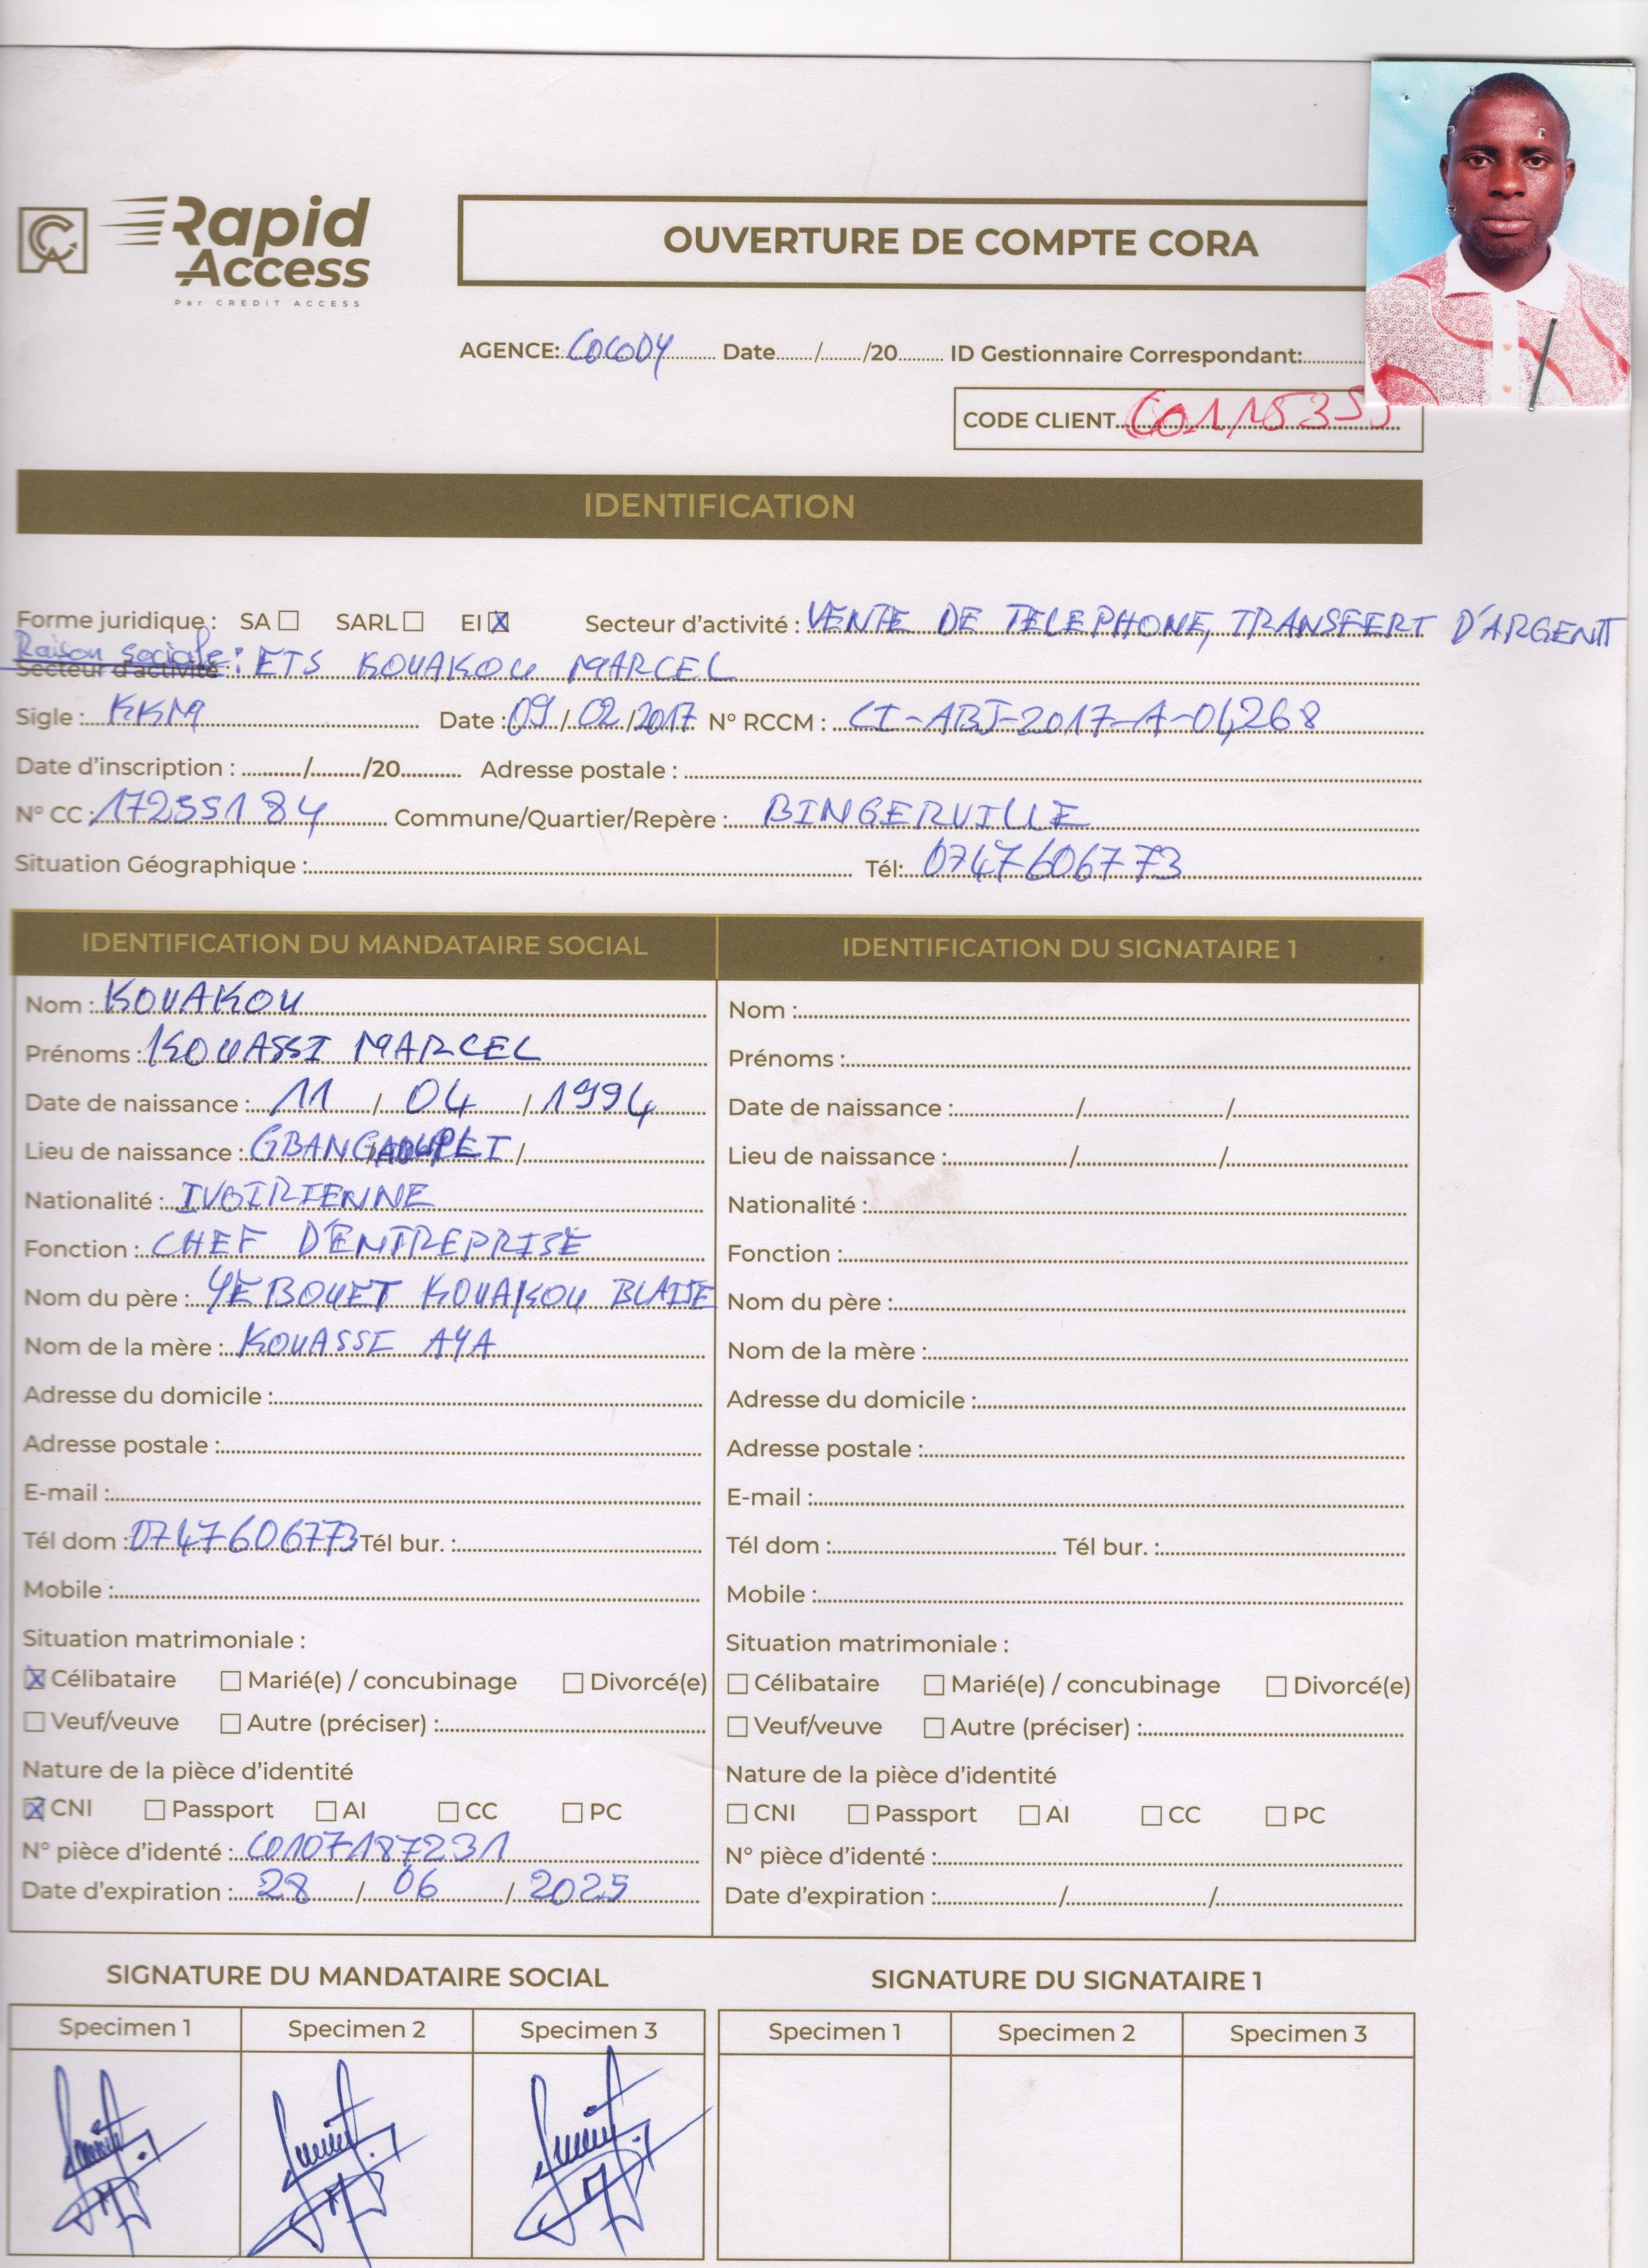 Rapid
Access
Par CREDIT ACCESS
OUVERTURE DE COMPTE CORA
AGENCE: COCODY Date ....../....../20...... ID Gestionnaire Correspondant:
CODE CLIENT
IDENTIFICATION
Forme juridique : SA ☐ SARL ☐ EI ☒ Secteur d'activité : VENTE DE TELEPHONE, TRANSFERT D'ARGENT
Raison sociale :
Secteur d'activité : ETS KOUAKOU MARCEL
Sigle : KKM Date : 09 / 02 / 2017 N° RCCM : CI-ABJ-2017-A-04268
Date d'inscription : ....../....../20...... Adresse postale :
N° CC : Commune/Quartier/Repère : BINGERVILLE
Situation Géographique : Tél: 0747606773
IDENTIFICATION DU MANDATAIRE SOCIAL
Nom : KOUAKOU
Prénoms : KOUASSI MARCEL
Date de naissance : 11 / 04 / 1994
Lieu de naissance : / /
Nationalité : IVOIRIENNE
Fonction : CHEF D'ENTREPRISE
Nom du père : YEBOUET KOUAKOU BLAISE
Nom de la mère : KOUASSI AYA
Adresse du domicile :
Adresse postale :
E-mail :
Tél dom : 0747606773 Tél bur. :
Mobile :
Situation matrimoniale :
☒ Célibataire ☐ Marié(e) / concubinage ☐ Divorcé(e)
☐ Veuf/veuve ☐ Autre (préciser) :
Nature de la pièce d'identité
☒ CNI ☐ Passport ☐ AI ☐ CC ☐ PC
N° pièce d'identé : C0107187231
Date d'expiration : 28 / 06 / 2025
IDENTIFICATION DU SIGNATAIRE 1
Nom :
Prénoms :
Date de naissance : / /
Lieu de naissance : / /
Nationalité :
Fonction :
Nom du père :
Nom de la mère :
Adresse du domicile :
Adresse postale :
E-mail :
Tél dom : Tél bur. :
Mobile :
Situation matrimoniale :
☐ Célibataire ☐ Marié(e) / concubinage ☐ Divorcé(e)
☐ Veuf/veuve ☐ Autre (préciser) :
Nature de la pièce d'identité
☐ CNI ☐ Passport ☐ AI ☐ CC ☐ PC
N° pièce d'identé :
Date d'expiration : / /
SIGNATURE DU MANDATAIRE SOCIAL
Specimen 1 Specimen 2 Specimen 3
SIGNATURE DU SIGNATAIRE 1
Specimen 1 Specimen 2 Specimen 3